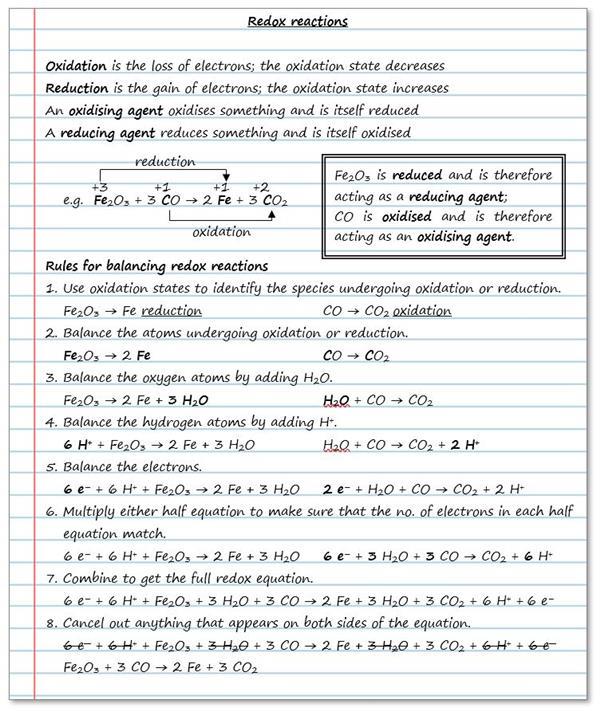 Redox reactions
Oxidation is the loss of electrons; the oxidation state decreases
Reduction is the gain of electrons; the oxidation state increases
An oxidising agent oxidises something and is itself reduced
A reducing agent reduces something and is itself oxidised
reduction
+3 +1 +1 +2
e.g. Fe₂O₃ + 3 CO → 2 Fe + 3 CO₂
oxidation
Fe₂O₃ is reduced and is therefore
acting as a reducing agent;
CO is oxidised and is therefore
acting as an oxidising agent.
Rules for balancing redox reactions
1. Use oxidation states to identify the species undergoing oxidation or reduction.
Fe₂O₃ → Fe reduction CO → CO₂ oxidation
2. Balance the atoms undergoing oxidation or reduction.
Fe₂O₃ → 2 Fe CO → CO₂
3. Balance the oxygen atoms by adding H₂O.
Fe₂O₃ → 2 Fe + 3 H₂O H₂O + CO → CO₂
4. Balance the hydrogen atoms by adding H⁺.
6 H⁺ + Fe₂O₃ → 2 Fe + 3 H₂O H₂O + CO → CO₂ + 2 H⁺
5. Balance the electrons.
6 e⁻ + 6 H⁺ + Fe₂O₃ → 2 Fe + 3 H₂O 2 e⁻ + H₂O + CO → CO₂ + 2 H⁺
6. Multiply either half equation to make sure that the no. of electrons in each half
equation match.
6 e⁻ + 6 H⁺ + Fe₂O₃ → 2 Fe + 3 H₂O 6 e⁻ + 3 H₂O + 3 CO → CO₂ + 6 H⁺
7. Combine to get the full redox equation.
6 e⁻ + 6 H⁺ + Fe₂O₃ + 3 H₂O + 3 CO → 2 Fe + 3 H₂O + 3 CO₂ + 6 H⁺ + 6 e⁻
8. Cancel out anything that appears on both sides of the equation.
6 e⁻ + 6 H⁺ + Fe₂O₃ + 3 H₂O + 3 CO → 2 Fe + 3 H₂O + 3 CO₂ + 6 H⁺ + 6 e⁻
Fe₂O₃ + 3 CO → 2 Fe + 3 CO₂